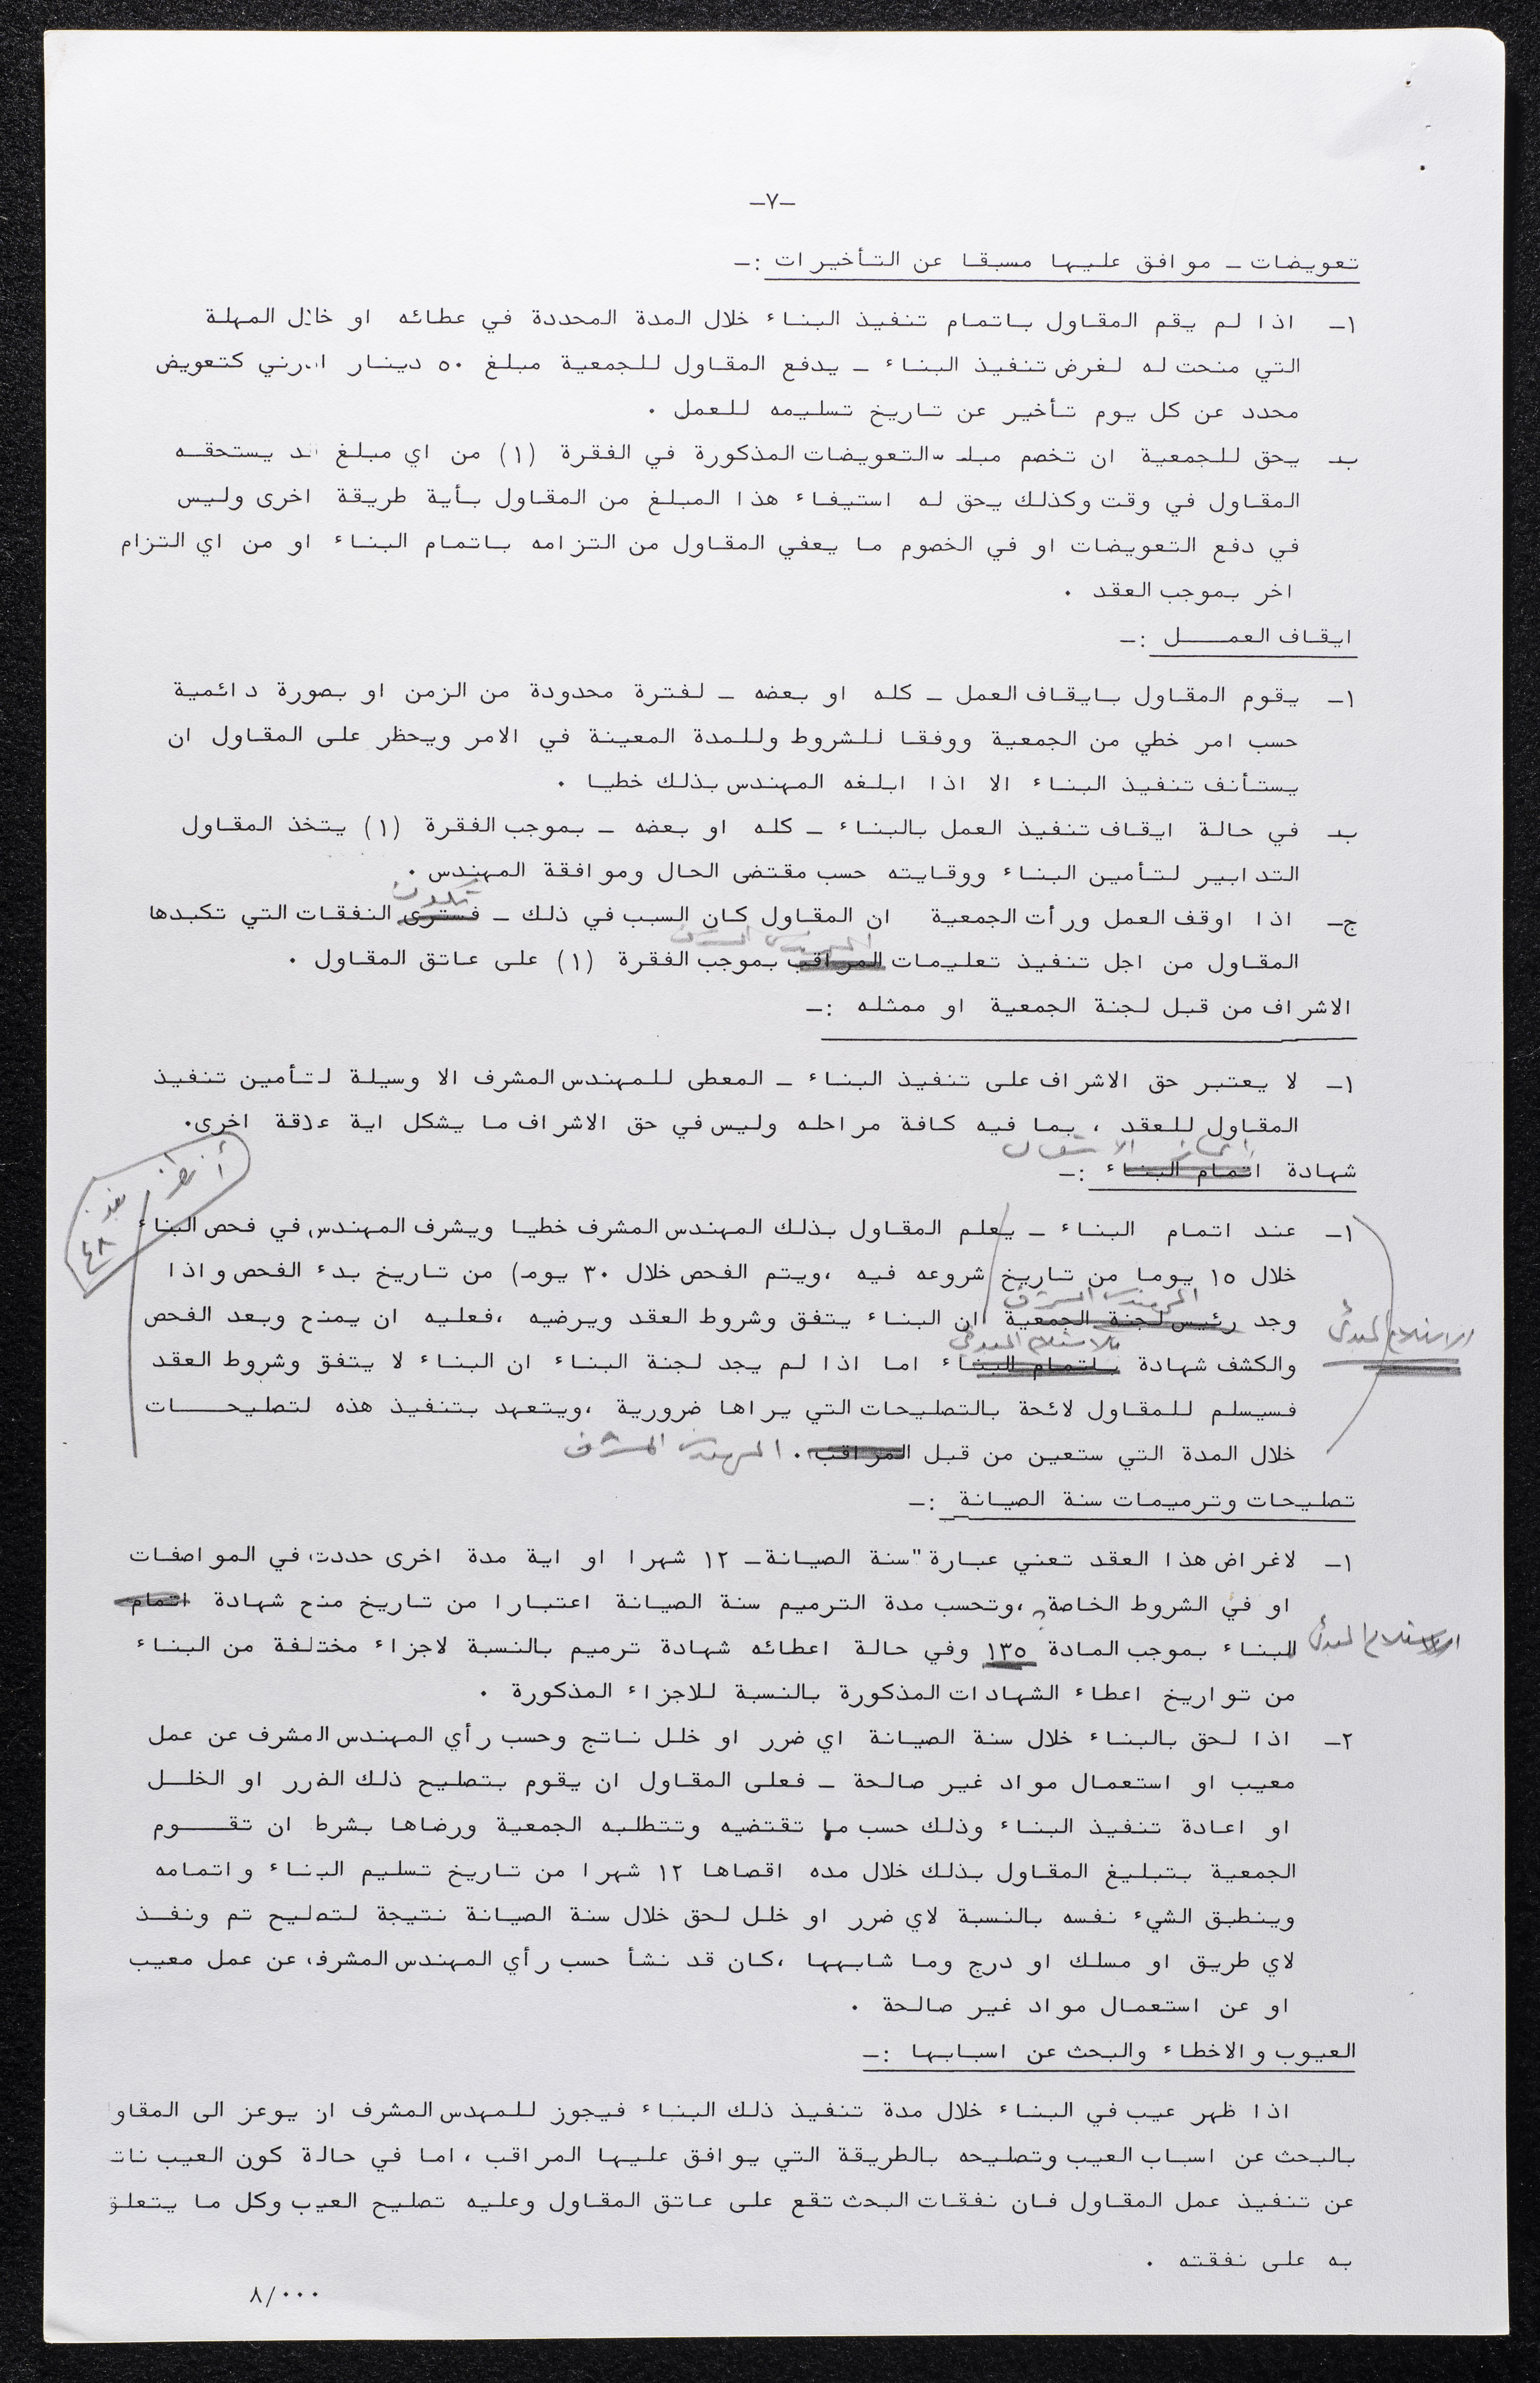 -٧-
تعويضات - موافق عليها مسبقا عن التأخيرات :-
١- اذا لم يقم المقاول باتمام تنفيذ البناء خلال المدة المحددة في عطائه او خلال المهلة
التي منحت له لغرض تنفيذ البناء - يدفع المقاول للجمعية مبلغ ٥٠ دينار اردني كتعويض
محدد عن كل يوم تأخير عن تاريخ تسليمه للعمل .
ب- يحق للجمعية ان تخصم مبلغ التعويضات المذكورة في الفقرة (١) من اي مبلغ قد يستحقه
المقاول في وقت وكذلك يحق له استيفاء هذا المبلغ من المقاول بأية طريقة اخرى وليس
في دفع التعويضات او في الخصوم ما يعفي المقاول من التزامه باتمام البناء او من اي التزام
اخر بموجب العقد .
ايقاف العمل :-
١- يقوم المقاول بايقاف العمل - كله او بعضه - لفترة محدودة من الزمن او بصورة دائمية
حسب امر خطي من الجمعية ووفقا للشروط وللمدة المعينة في الامر ويحظر على المقاول ان
يستأنف تنفيذ البناء الا اذا ابلغه المهندس بذلك خطيا .
ب- في حالة ايقاف تنفيذ العمل بالبناء - كله او بعضه - بموجب الفقرة (١) يتخذ المقاول
التدابير لتأمين البناء ووقايته حسب مقتضى الحال وموافقة المهندس .
تكون
ج- اذا اوقف العمل ورأت الجمعية ان المقاول كان السبب في ذلك - فسترى النفقات التي تكبدها
المهندس المشرف
المقاول من اجل تنفيذ تعليمات المراقب بموجب الفقرة (١) على عاتق المقاول .
الاشراف من قبل لجنة الجمعية او ممثله :-
١- لا يعتبر حق الاشراف على تنفيذ البناء - المعطى للمهندس المشرف الا وسيلة لتأمين تنفيذ
المقاول للعقد ، بما فيه كافة مراحله وليس في حق الاشراف ما يشكل اية علاقة اخرى.
انجاز الاشغال
شهادة اتمام البناء :-
أنظر بند ٤٨
١- عند اتمام البناء - يعلم المقاول بذلك المهندس المشرف خطيا ويشرف المهندس في فحص البناء
خلال ١٥ يوما من تاريخ شروعه فيه ،ويتم الفحص خلال ٣٠ يوما من تاريخ بدء الفحص واذا
المهندس المشرف
وجد رئيس لجنة الجمعية ان البناء يتفق وشروط العقد ويرضيه ،فعليه ان يمنح وبعد الفحص
الاستلام المبدئي
بالاستلام المبدئي
والكشف شهادة باتمام البناء اما اذا لم يجد لجنة البناء ان البناء لا يتفق وشروط العقد
فسيسلم للمقاول لائحة بالتصليحات التي يراها ضرورية ،ويتعهد بتنفيذ هذه لتصليحات
خلال المدة التي ستعين من قبل المراقب . المهندس المشرف
تصليحات وترميمات سنة الصيانة :-
١- لاغراض هذا العقد تعني عبارة "سنة الصيانة- ١٢ شهرا او اية مدة اخرى حددت في المواصفات
او في الشروط الخاصة ،وتحسب مدة الترميم سنة الصيانة اعتبارا من تاريخ منح شهادة اتمام
الاستلام المبدئي
البناء بموجب المادة ١٣٥ وفي حالة اعطائه شهادة ترميم بالنسبة لاجزاء مختلفة من البناء
من تواريخ اعطاء الشهادات المذكورة بالنسبة للاجزاء المذكورة .
٢- اذا لحق بالبناء خلال سنة الصيانة اي ضرر او خلل ناتج وحسب رأي المهندس المشرف عن عمل
معيب او استعمال مواد غير صالحة - فعلى المقاول ان يقوم بتصليح ذلك الضرر او الخلل
او اعادة تنفيذ البناء وذلك حسب ما تقتضيه وتتطلبه الجمعية ورضاها بشرط ان تقوم
الجمعية بتبليغ المقاول بذلك خلال مده اقصاها ١٢ شهرا من تاريخ تسليم البناء واتمامه
وينطبق الشيء نفسه بالنسبة لاي ضرر او خلل لحق خلال سنة الصيانة نتيجة لتصليح تم ونفذ
لاي طريق او مسلك او درج وما شابهها ،كان قد نشأ حسب رأي المهندس المشرف عن عمل معيب
او عن استعمال مواد غير صالحة .
العيوب والاخطاء والبحث عن اسبابها :-
اذا ظهر عيب في البناء خلال مدة تنفيذ ذلك البناء فيجوز للمهدس المشرف ان يوعز الى المقاو
بالبحث عن اسباب العيب وتصليحه بالطريقة التي يوافق عليها المراقب ، اما في حالة كون العيب نات
عن تنفيذ عمل المقاول فان نفقات البحث تقع على عاتق المقاول وعليه تصليح العيب وكل ما يتعلق
به على نفقته .
٨/٠٠٠